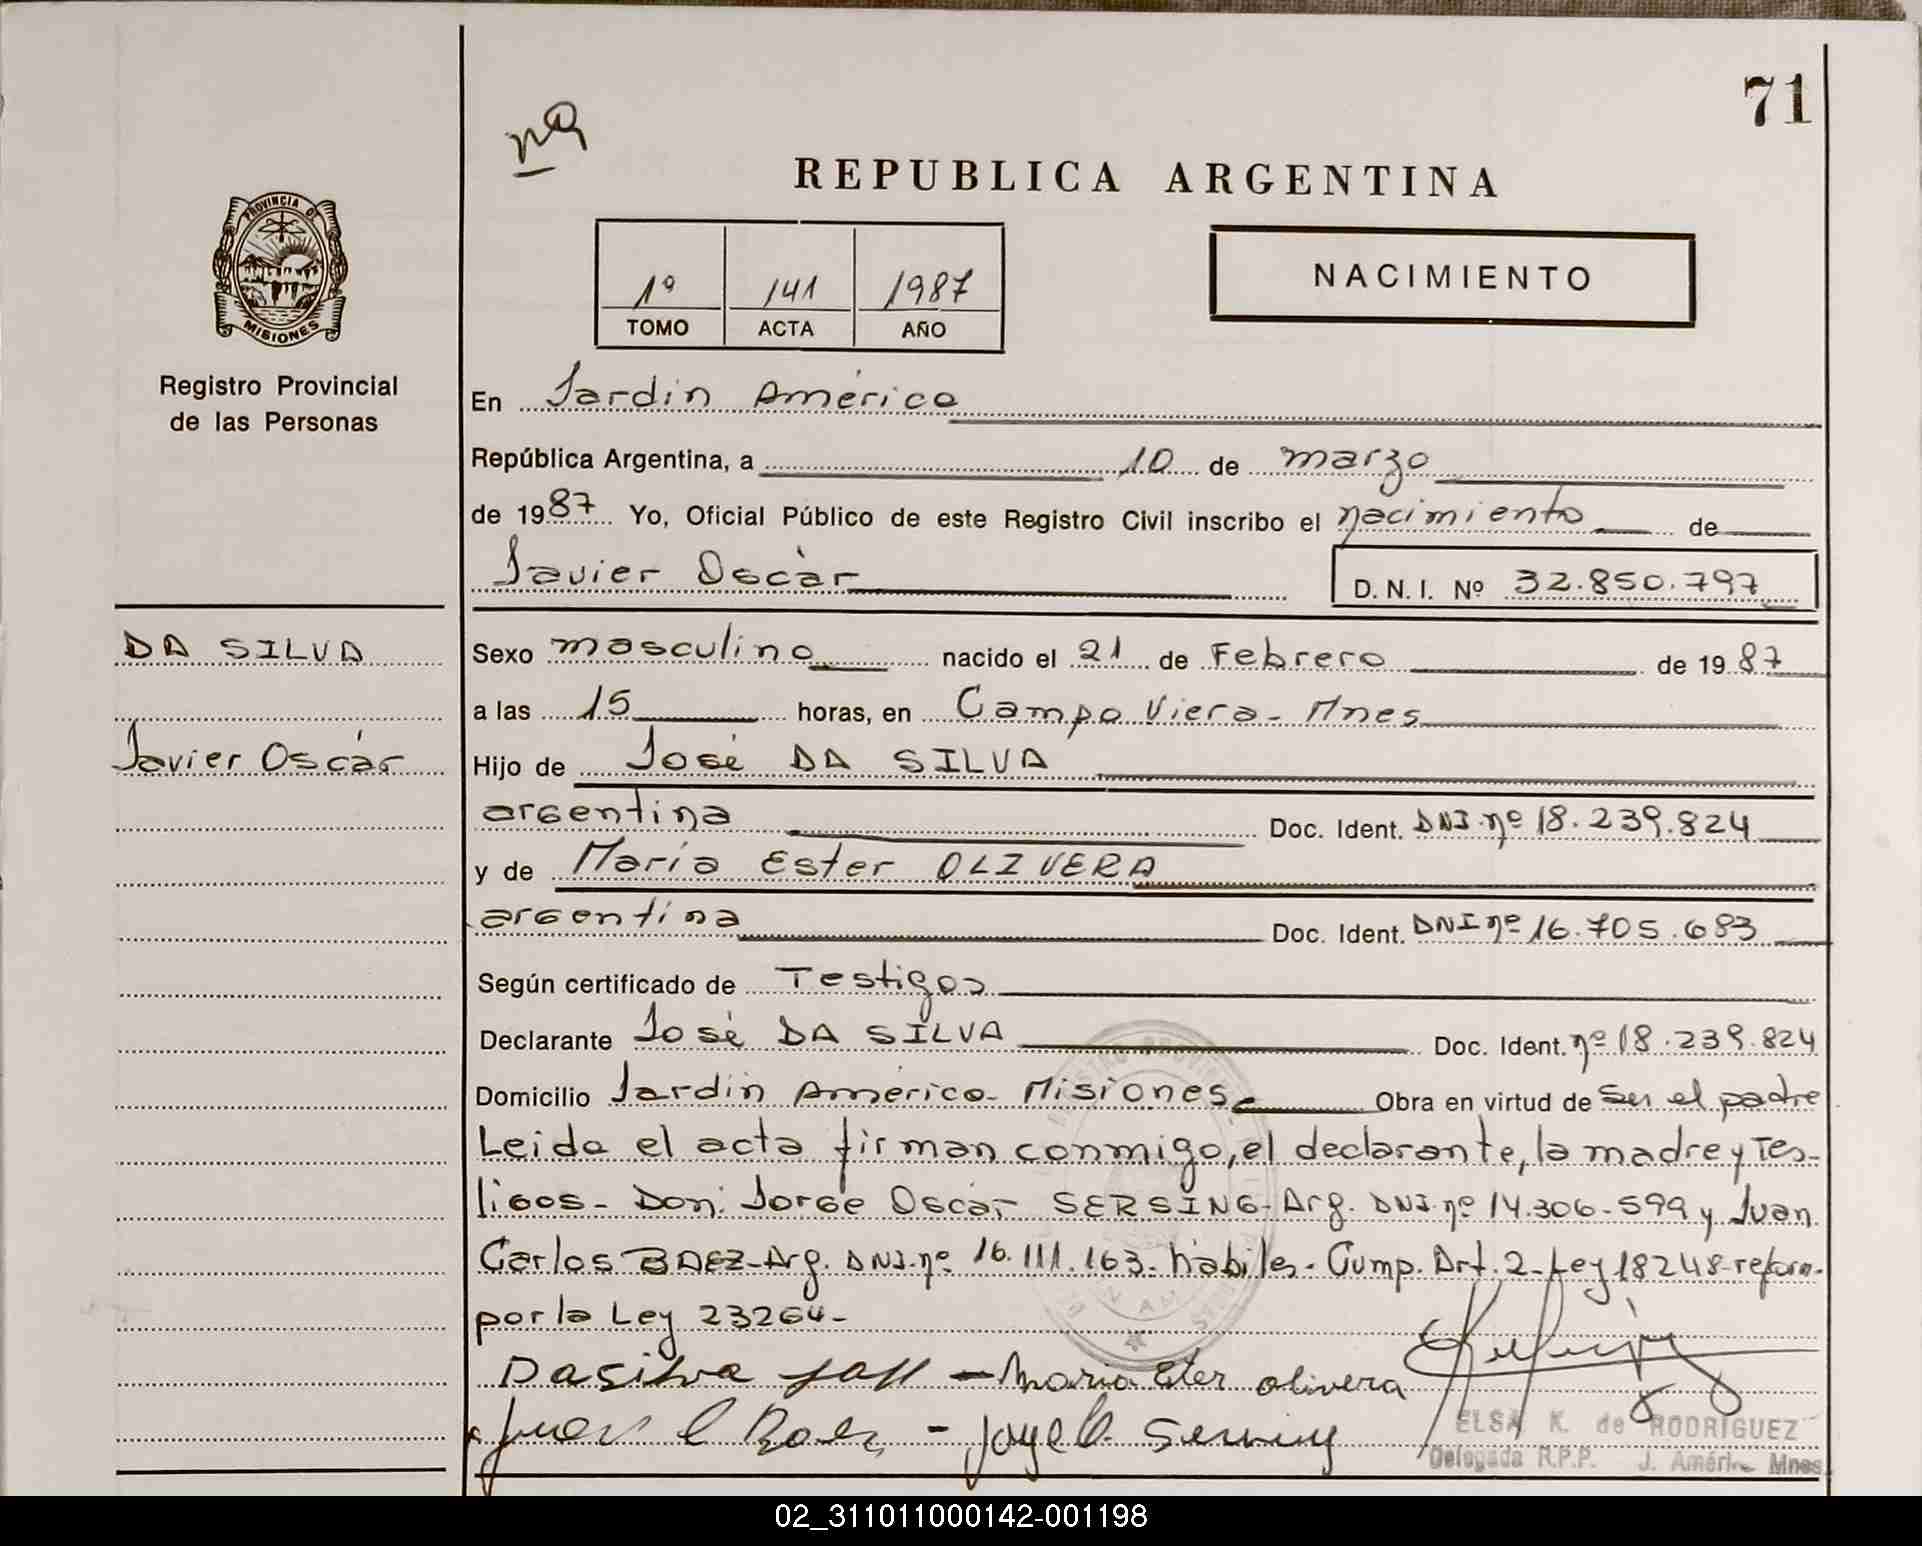 71
nº
REPUBLICA ARGENTINA
PROVINCIA DE
MISIONES
Registro Provincial
de las Personas
1º 141 1987
TOMO ACTA AÑO
NACIMIENTO
En Jardin América
República Argentina, a 10 de marzo
de 1987 Yo, Oficial Público de este Registro Civil inscribo el nacimiento de
Javier Oscár
D.N.I. Nº 32.850.797
DA SILVA
Javier Oscár
Sexo masculino nacido el 21 de Febrero de 1987
a las 15 horas, en Campo Viera - Mnes
Hijo de José DA SILVA
argentina Doc. Ident. DNI.nº 18.239.824
y de María Ester OLIVERA
argentina Doc. Ident. DNI nº 16.705.683
Según certificado de Testigos
Declarante José DA SILVA Doc. Ident. nº 18.239.824
Domicilio Jardin América - Misiones. Obra en virtud de ser el padre
Leida el acta firman conmigo, el declarante, la madre y Tes-
tigos - Don: Jorge Oscár SERSING - Arg. DNI.nº 14.306.599 y Juan
Carlos BAEZ - Arg. DNI.nº 16.111.163 - hábiles - Cump. Art. 2 - Ley 18248 - reform.
por la Ley 23264 -
Da silva - Maria Ester olivera
Juan C Baez -
ELSA K. de RODRIGUEZ
Delegada R.P.P. J. América Mnes
02_311011000142-001198